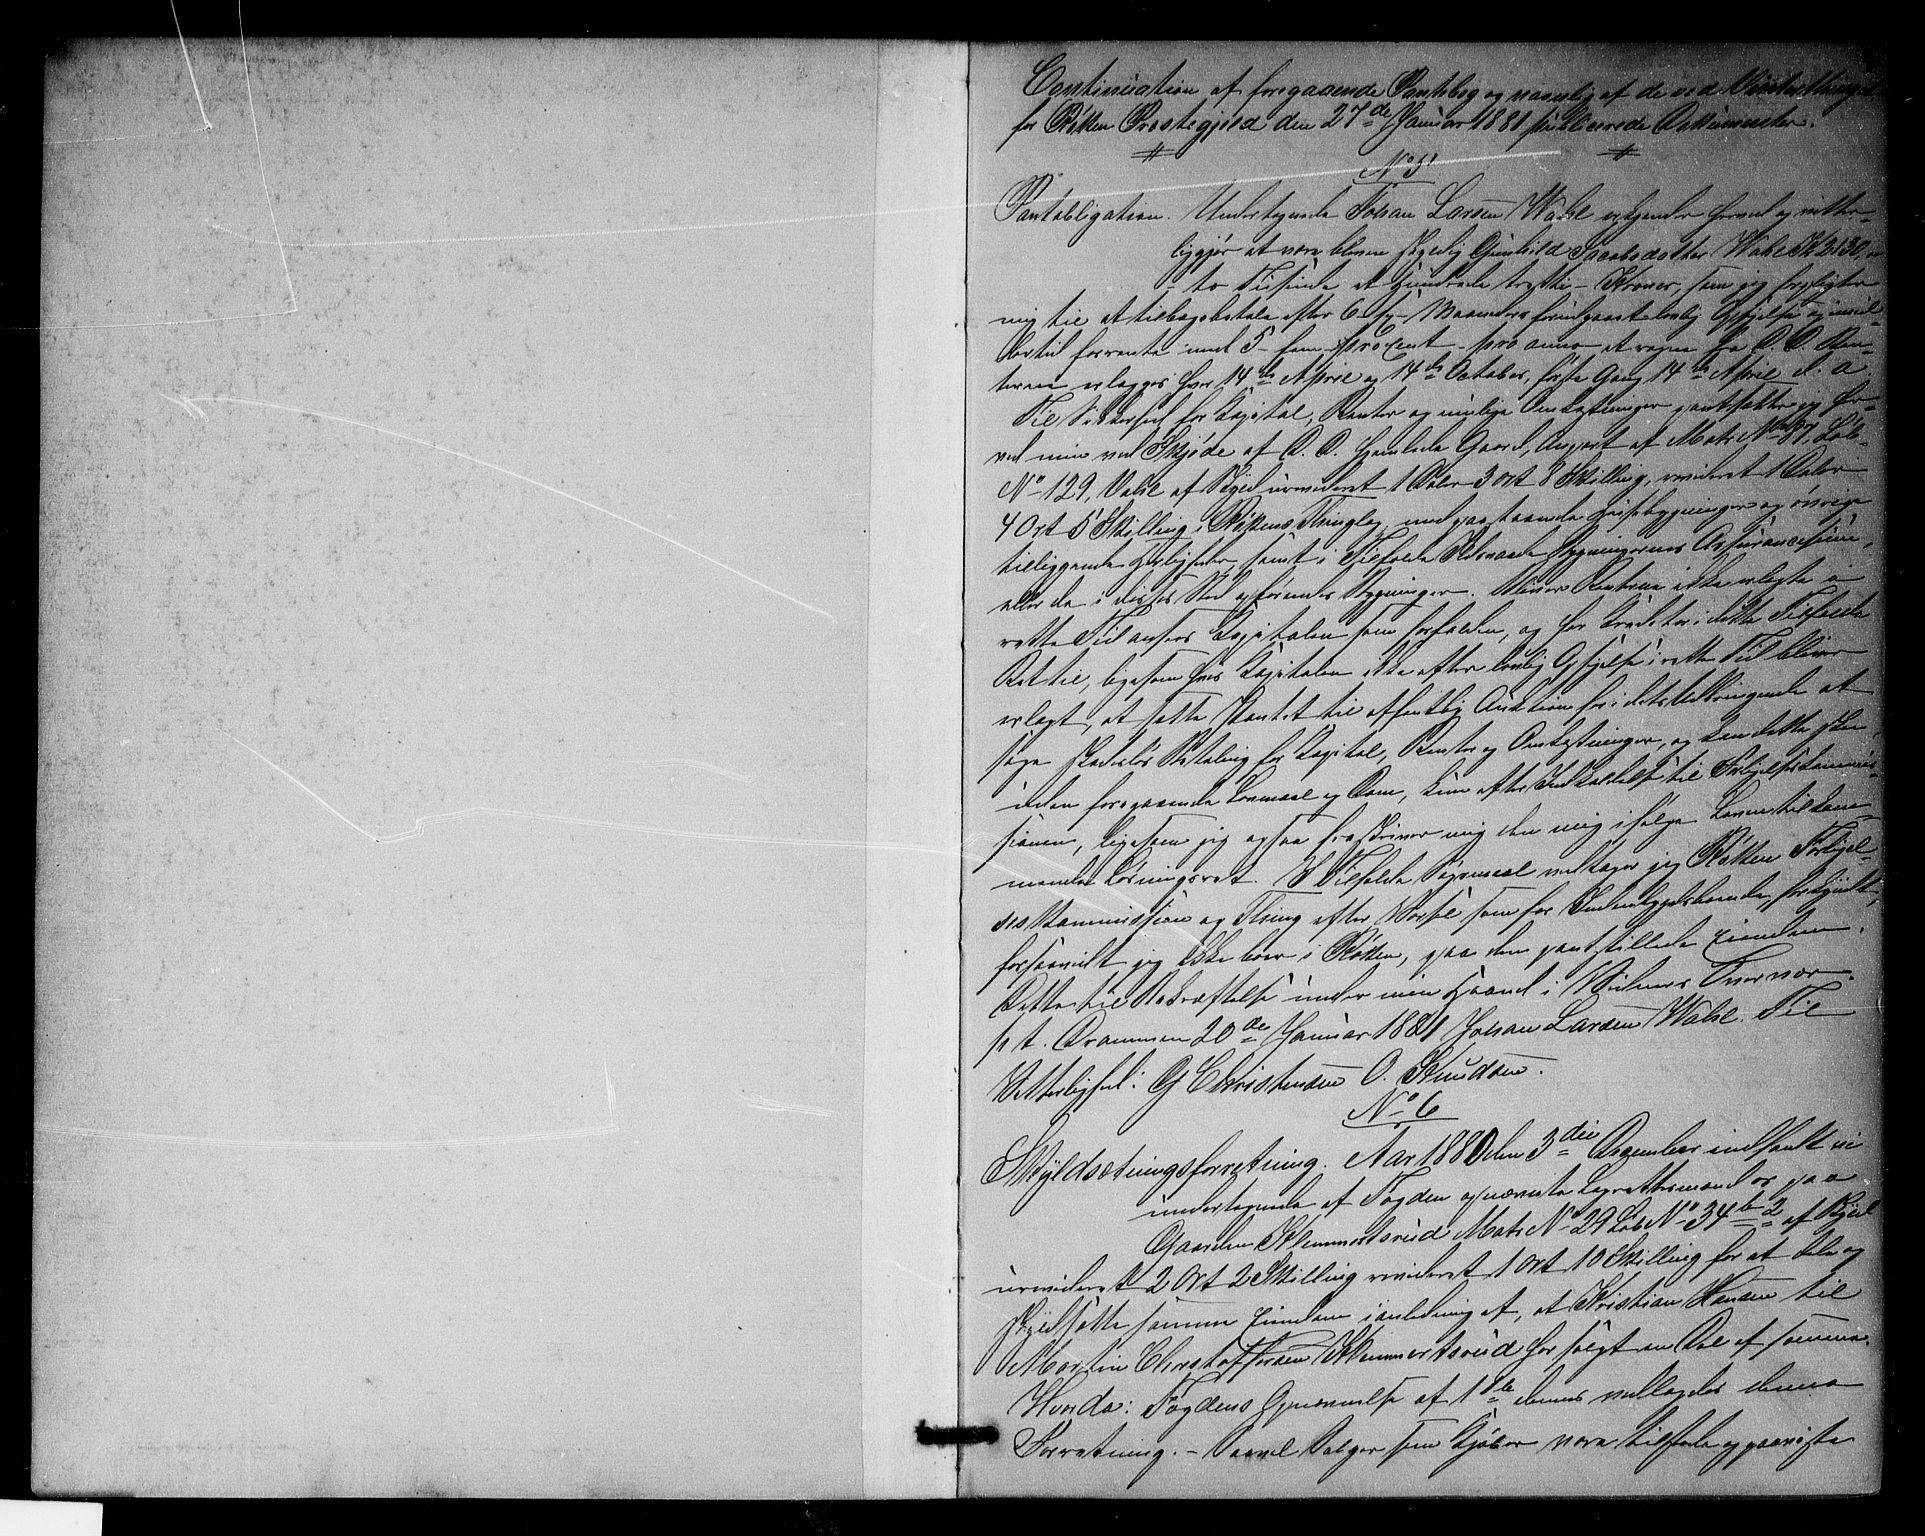 Continuation af foregaaende Pantebog og navnlig af de ved Vinterthinget
for Røken Præstegjeld den 27de Januar 1881 publicerede Dokumenter.
No 5
Pantobligation. Undertegnede Johan Larsen Wahl erkjender herved og vitter-
liggjør at være bleven skyldig Gunhild Jacobsdatter Wahl Kr 2130,
to Tusinde et Hundrede tretti - Kroner, som jeg forpligter
mig til at tilbagebetale efter 6 - sex - Maaneders forudgaaet lovlig Opsigelse og imid-
lertid forrente med 5 - fem - procent - pro anno at regne fra D. D. Ren-
terne erlægges hver 14de April og 14de October, første Gang 14de April d. A.
Til Sikkerhed for Kapital, Renter og mulige Omkostninger pantsætter jeg her-
ved min ved Skjøde af D. D. Gaard, Anpart af Matr No 37, Løb-
No 129, Vahl af Skyld urevideret 1 Daler 3 Ort 8 Skilling, revideret 1 Daler
4 Ort 5 Skilling i Røkens Thinglag, med paastaaende Huusbygninger og øvrige
tilliggende Herligheder samt i Tilfælde Ildsvaade Bygningernes Assurancesum,
eller de i dettes Sted opførendes Bygninger. Bliver Renterne ikke erlagte i
rette Tid ansees Kapitalen som forfalden, og har Kreditor i dette Tilfælde
Ret til, ligesom hvis Kapitalen ikke efter lovlig Opsigelse i rette Tid bliver
erlagt, at sætte Pantet til offentlig Auktion for i dets Udbringende at
søge skadesløs Betaling for Kapital, Renter og Omkostninger, og kan dette ske
uden foregaaende Lovmaal og Dom, kun efter Indkaldelse til Forligelseskommis-
sionen, ligesom jeg ogsaa fraskriver mig den mig ifølge Loven tilkom-
mende Løsningsret. I Tilfælde Søgsmaal vedtager jeg Røken Forligel-
ses Kommission og Thing efter Varsel som for Indenbygdsboende, forkyndt,
forsaavidt jeg ikke boer i Røken, paa den pantstillede Eiendom.
Dette til Bekræftelse under min Haand i Vidners Overvær.
p t. Drammen 20de Januar 1881 Johan Larsen Wahl. Til
Vitterlighed: G Christensen O. Knudsen.
No 6
Skyldsætningsforretning. Aar 1880 den 3die December indfandt vi
undertegnede af Fogden opnævnte Lagrettesmænd os paa
Gaarden Klemmetsrud Matr No 29 Løb No 34 b 2 af Skyld
urevideret 2 Ort 2 Skilling revideret 1 Ort 10 Skilling for at dele og
skyldsætte samme Eiendom i anledning af, at Kristian Hansen til
Martin Christoffersen Klemmetsrud har solgt en Del af samme.
Hvorda: Fogdens Opnævnelse af 1ste dennes vedlagdes denne
Forretning. - Saavel Sælger som Kjøber vare tilstede og paaviste